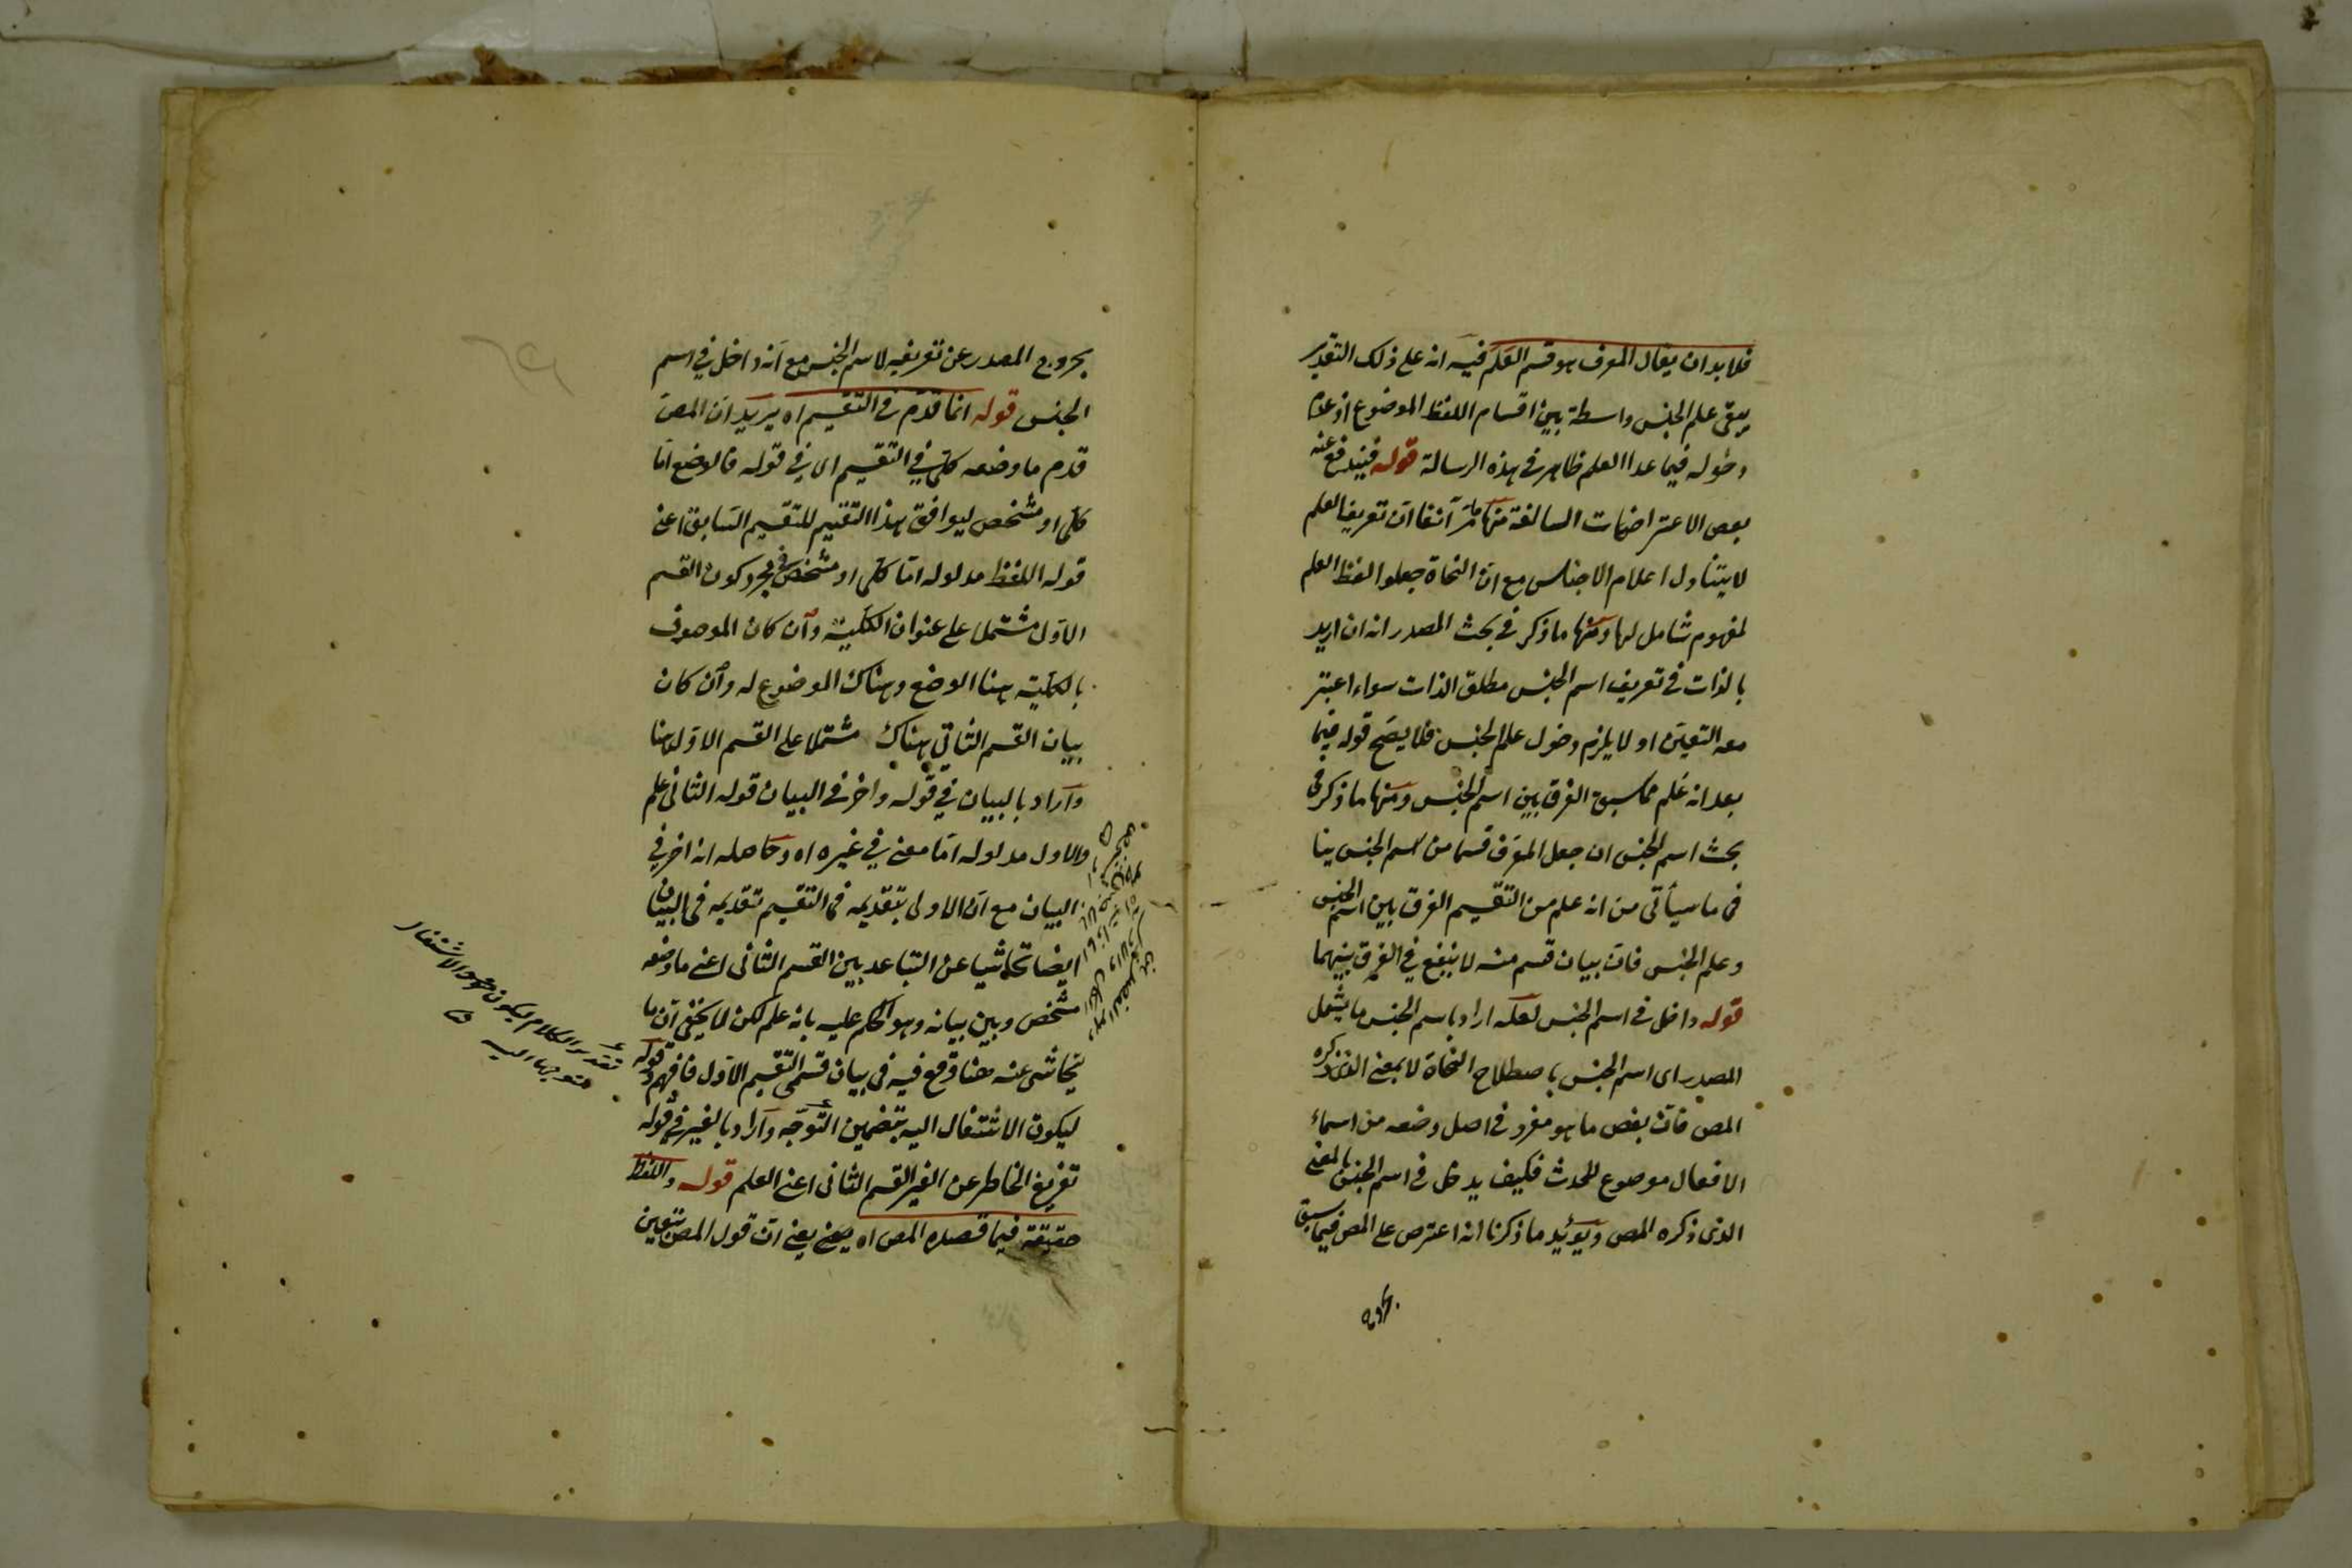 فلا بد ان يقال المعرف هو قسم العَلَم فيه انه على ذلك التقدير
يبقى علم الجنس واسطة بين اقسام اللفظ الموضوع اذ عدم
دخوله فيما عدا العلم ظاهر في هذه الرسالة قوله فيندفع عنه
بعض الاعتراضات السالفة منها مامرّ آنفا انّ تعريف العلم
لا يتناول اعلام الاجناس مع انّ النحاة جعلوا لفظ العلم
لمفهوم شامل لها ومنها ما ذكر في بحث المصدر انه ان اريد
بالذات في تعريف اسم الجنس مطلق الذات سواء اعتبر
معه التعيّن او لا يلزم دخول علم الجنس فلا يصحّ قوله فيما
بعد انه عُلم مما سبق الفرق بين اسم الجنس ومنها ما ذكر في
بحث اسم الجنس ان جعل المعرّف قسما من اسم الجنس ينا
في ما سيأتي من انه علم من التقسيم الفرق بين اسم الجنس
وعلم الجنس فانّ بيان قسم منه لا ينفع في الفرق بينهما
قوله داخل في اسم الجنس لعلّه اراد باسم الجنس ما يشمل
المصدر اى اسم الجنس باصطلاح النحاة لا بمعنى الذى ذكره
المص فانّ بعض ما هو مفرد في اصل وضعه من اسماء
الافعال موضوع للحدث فكيف يدخل في اسم الجنس بالمعنى
الذى ذكره المص ويؤيد ما ذكرنا انه اعترض على المص فيما سبق
بخروج
بخروج المصدر عن تعريفه لاسم الجنس مع انّه داخل في اسم
الجنس قوله انما قدّم في التقسيم اه يريد انّ المص
قدم ما وضعه كلّى في التقسيم اى في قوله فالوضع امّا
كلّى او مشخص ليوافق هذا التقسيم للتقسيم السابق اعنى
قوله اللفظ مدلوله امّا كلّى او مشخص في مجرد كون القسم
الاوّل مشتملا على عنوان الكلّية وان كان الموصوف
بالكلّية هنا الوضع وهناك الموضوع له وان كان
بيان القسم الثاني هناك مشتملا على القسم الاوّل هنا
وأراد بالبيان في قوله واخر في البيان قوله الثانى علم
والاول مدلوله امّا معنى في غيره اه وحاصله انه اخر في
البيان مع انّ الاولى بتقديمه في التقسيم تقديمه في البيان
ايضا تحاشيا عن التباعد بين القسم الثانى اعنى ما وضعه
مشخص وبين بيانه وهو الحكم عليه بانه علم لكن لا يخفى انّ ما
يتحاشى عنه هنا وقع فيه في بيان قسمى التقسيم الاوّل فافهم قوله
ليكون الاشتغال اليه بتضمين التوجّه وأراد بالغير في قوله
تفريغ الخاطر عن الغير القسم الثانى اعنى العلم قوله واللفظ
حقيقة فيما قصده المص اه يعنى انّ قول المص بتعين
تقدير الكلام ليكون الاشتغال
متوجها اليه